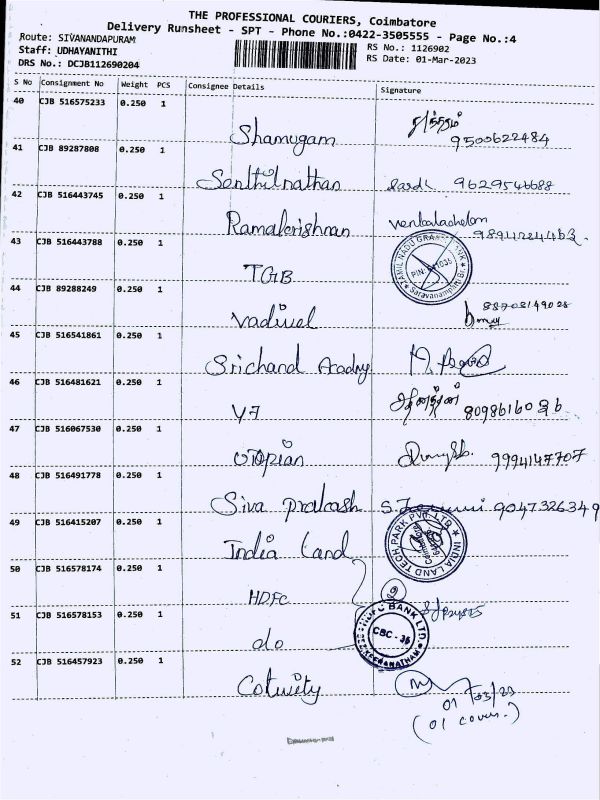 THE PROFESSIONAL COURIERS, Coimbatore
Delivery Runsheet - SPT - Phone No.:0422-3505555 - Page No.:4
Route: SIVANANDAPURAM
RS No.: 1126902
Staff: UDHAYANITHI
RS Date: 01-Mar-2023
DRS No.: DCJB112690204
S No Consignment No Weight PCS Consignee Details Signature
40 CJB 516575233 0.250 1
Shamugam 9500622484
41 CJB 89287808 0.250 1
Senthilnathan 9629546688
42 CJB 516443745 0.250 1
Ramakrishnan venkalachelam
43 CJB 516443788 0.250 1
TGB
TAMIL NADU GRAMA BANK
Saravanampatti Br.
44 CJB 89288249 0.250 1
Vadivel
45 CJB 516541861 0.250 1
Srichand Acadmy
46 CJB 516481621 0.250 1
Y7 8098616036
47 CJB 516067530 0.250 1
Utopian 9994147707
48 CJB 516491778 0.250 1
Siva Prakash 9047326349
49 CJB 516415207 0.250 1
India Land
INDIA LAND TECH PARK PVT. LTD.
50 CJB 516578174 0.250 1
HDFC
51 CJB 516578153 0.250 1
do
HDFC BANK LTD.
CBC - 36
52 CJB 516457923 0.250 1
Cotwity
01/03/23
(01 cover.)